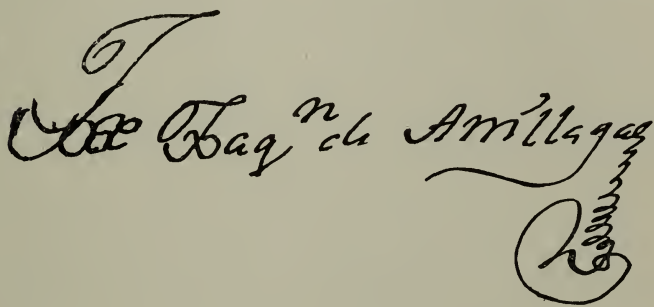 Jose Joaqⁿ de Arrillaga